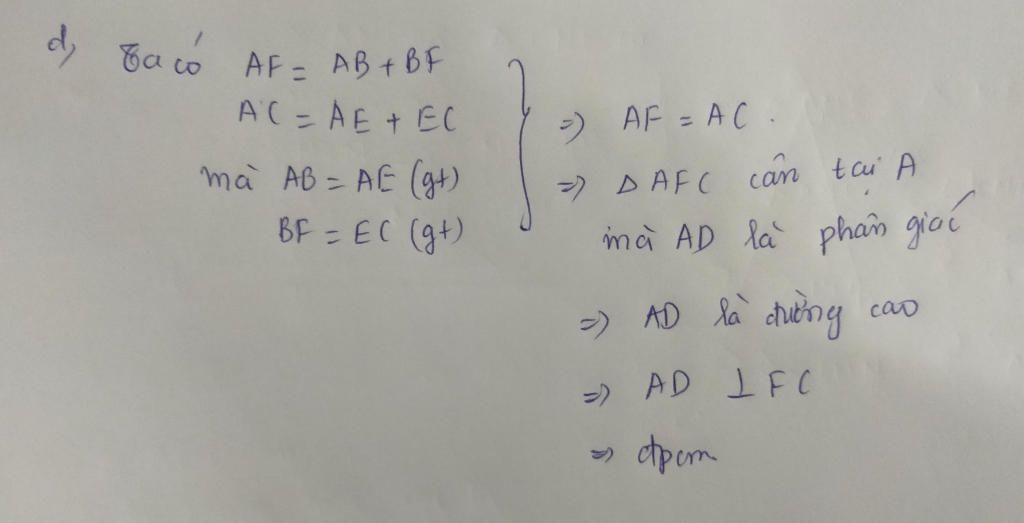 d, Ta có AF = AB + BF
AC = AE + EC
mà AB = AE (gt)
BF = EC (gt)
=> AF = AC.
=> Δ AFC cân tại A
mà AD là phân giác
=> AD là đường cao
=> AD ⊥ FC
=> đpcm